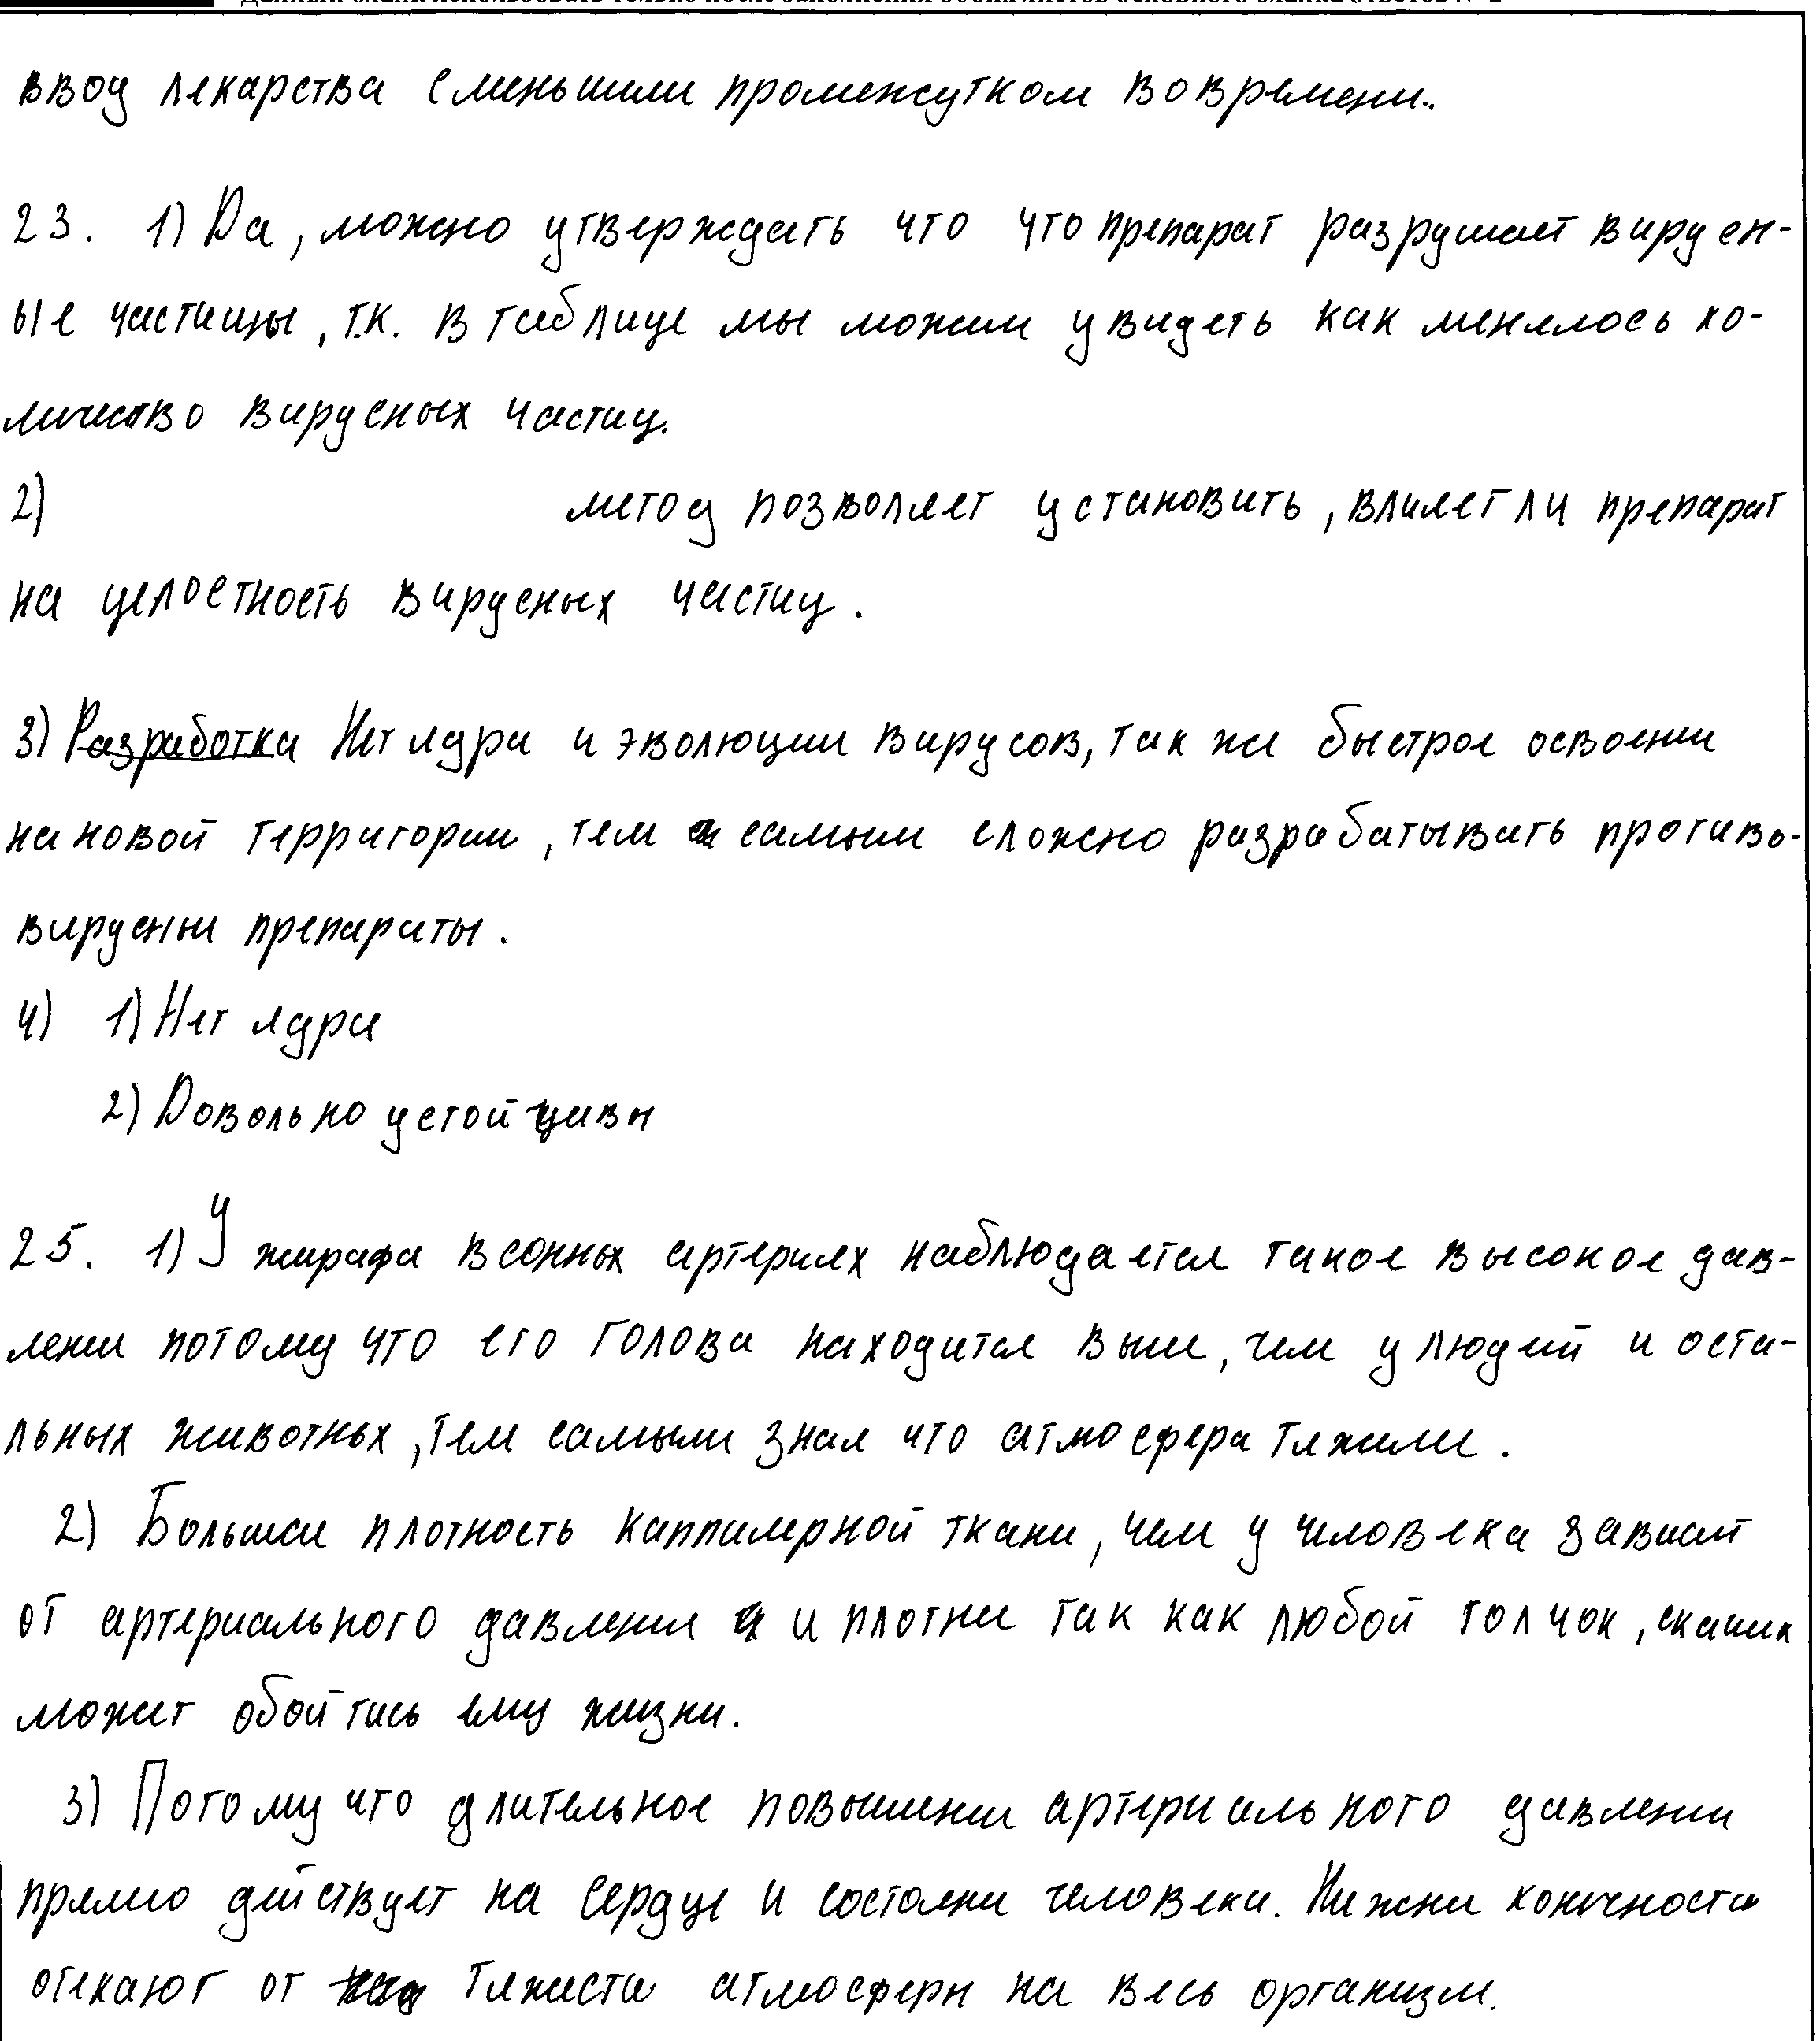 ввод лекарства с меньшим промежутком во времени..
23. 1) Да, можно утверждать что что препарат разрушает вирусн-
ые частицы, т.к. в таблице мы можем увидеть как менялось ко-
личество вирусных частиц.
2) метод позволяет установить, влияет ли препарат
на целостность вирусных частиц.
3) Разработка Нет ядра и эволюции вирусов, так же быстрое освоении
на новой территории, тем самым сложно разрабатывать противо-
вирусны препараты.
4) 1) Нет ядра
2) Довольно устойчивы
25. 1) У жирафа в сонных артериях наблюдается такое высокое дав-
лении потому что его голова находится выше, чем у людей и оста-
льных животных, тем самым зная что атмосфера тяжелее.
2) Большая плотность каппилярной ткани, чем у человека зависит
от артериального давления и плотнее так как любой толчок, скачик
может обойтись ему жизни.
3) Потому что длительное повышении артериального давлении
прямо действует на сердце и состояни человека. Нижни конечности
отекают от тяжести атмосферы на весь организм.